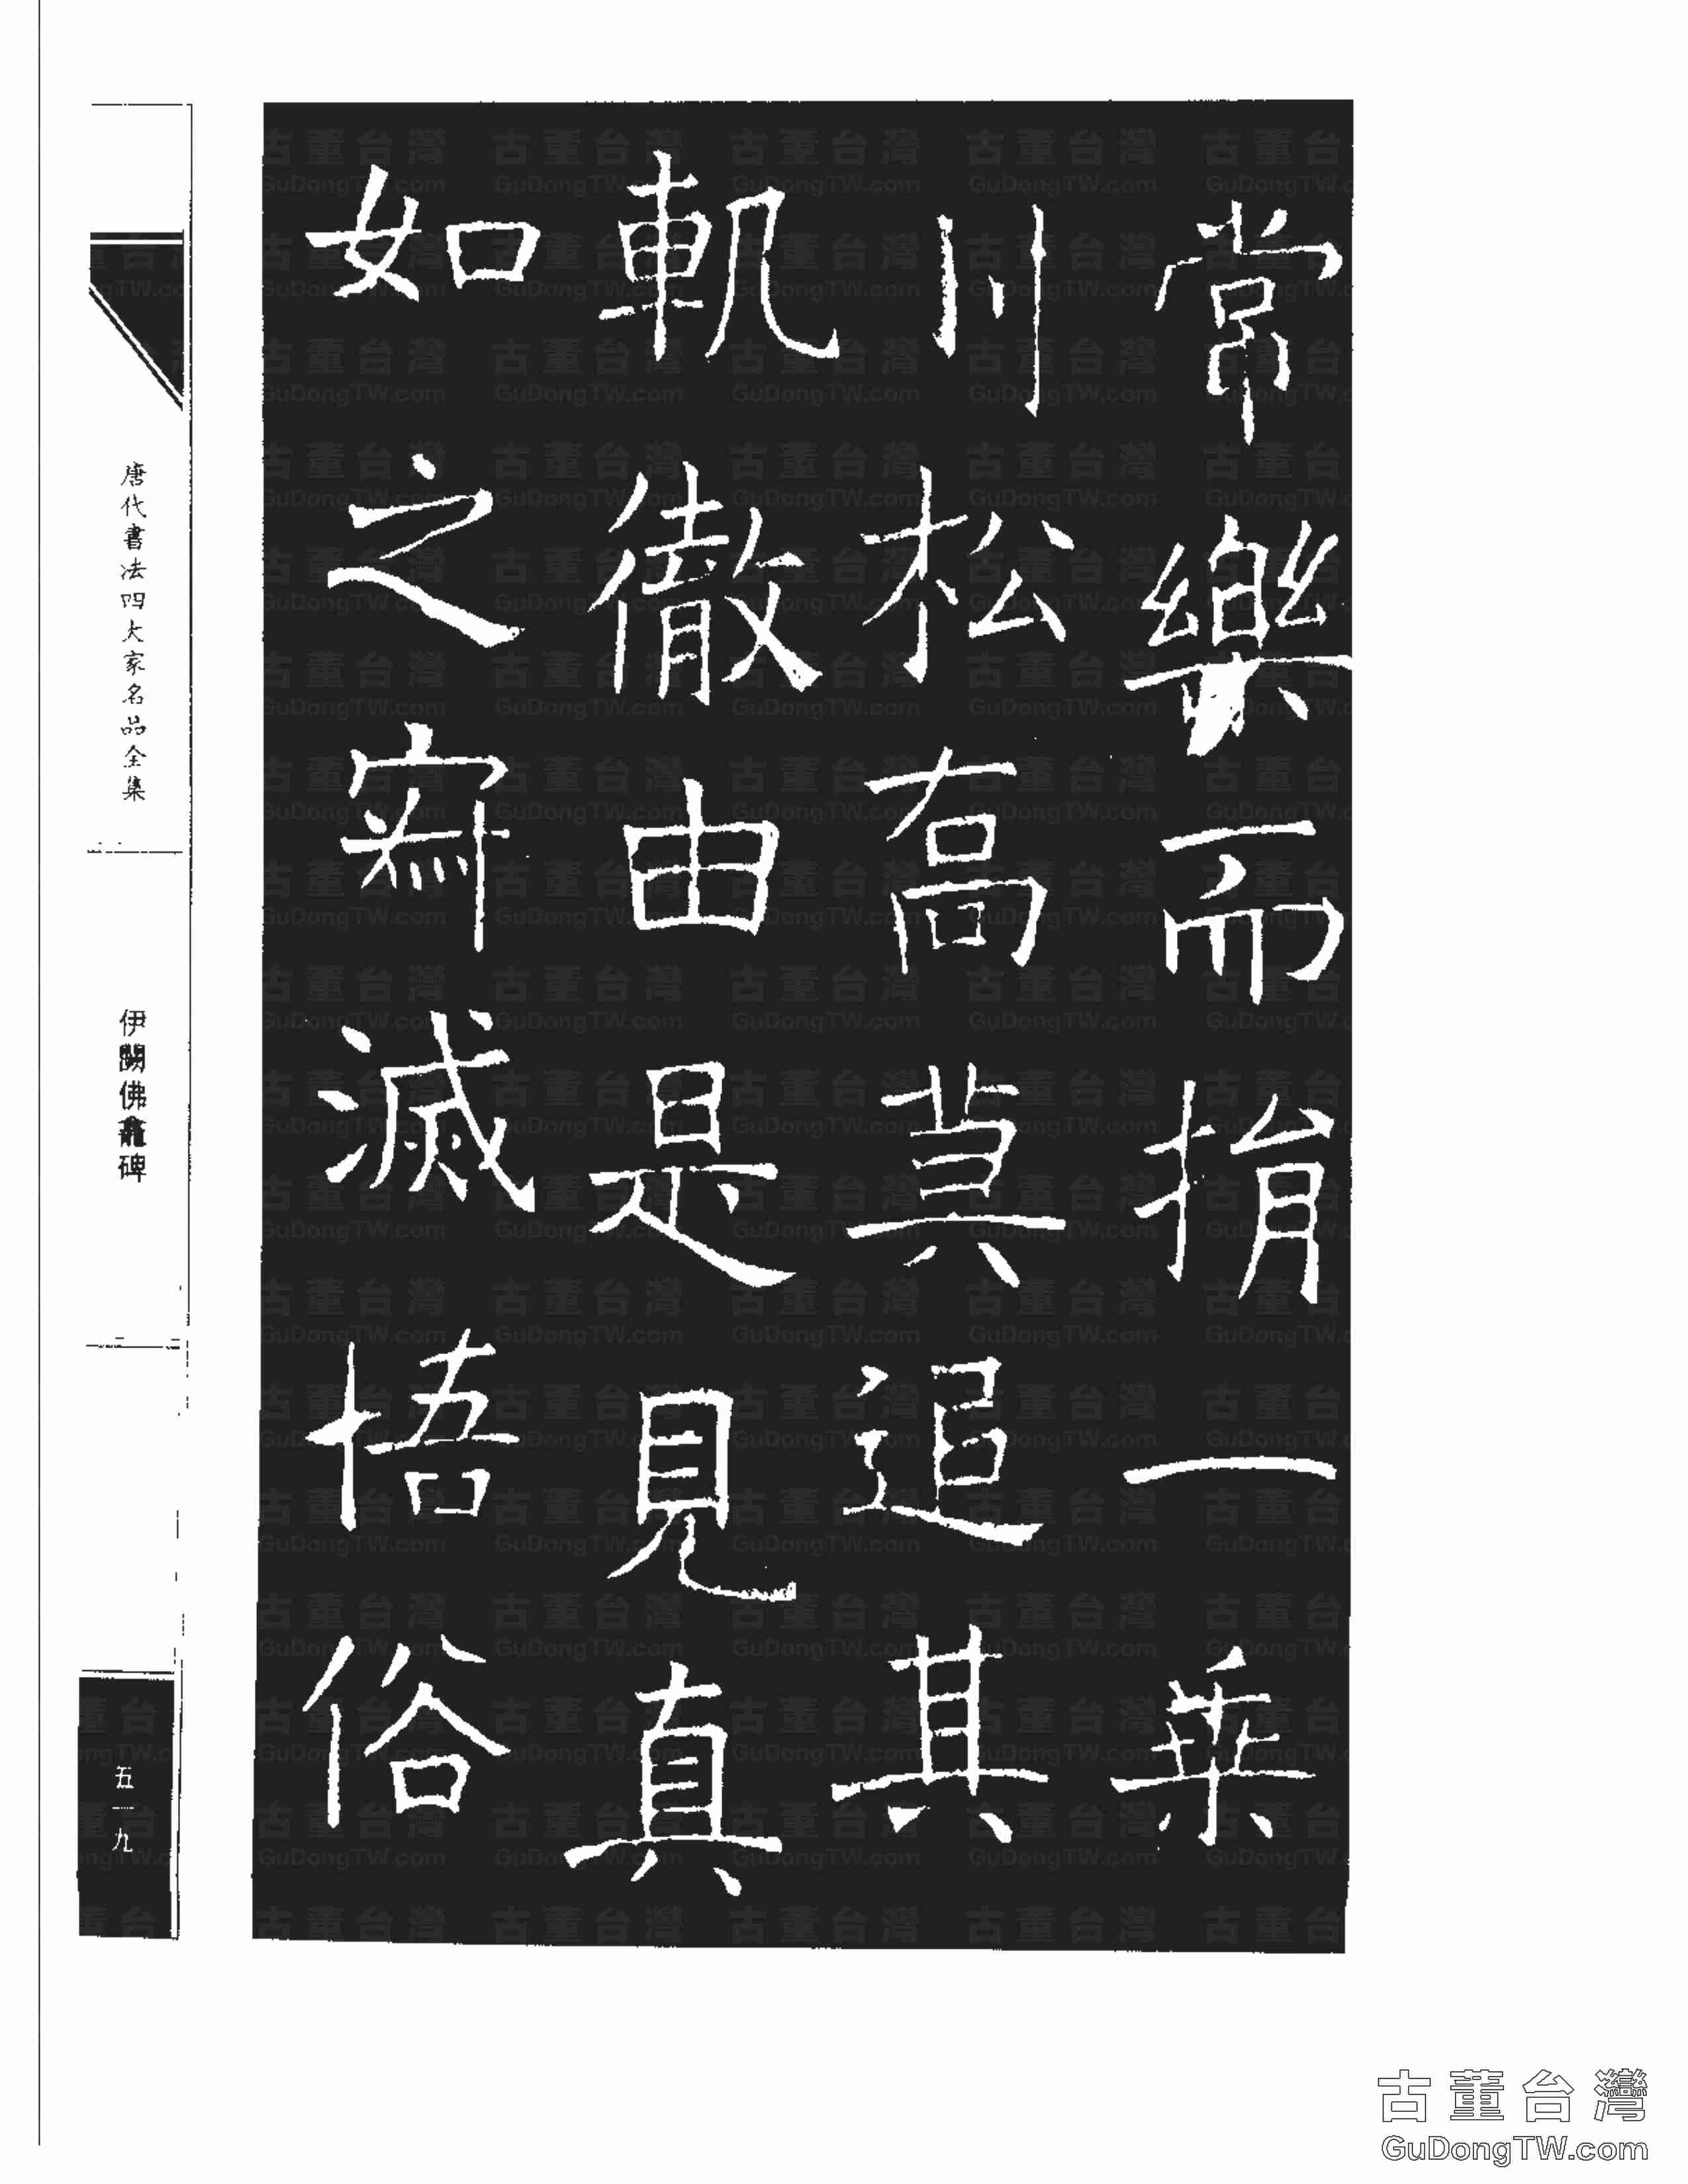 常樂而捐一乗
川松高莫追其
軌徹由是見真
如之寂滅悟俗
唐代書法四大家名品全集
伊闕佛龕碑
五一九
古董台灣
GuDongTW.com